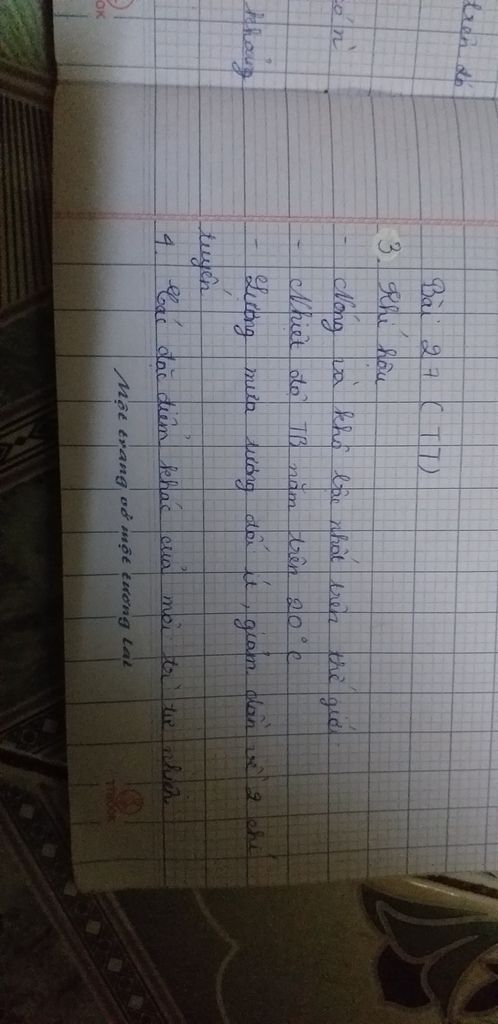 Bài 27 (TT)
3. Khí hậu
- Nóng và khô bậc nhất trên thế giới.
- Nhiệt độ TB năm trên 20°C
- Lượng mưa tương đối ít, giảm dần về 2 chí
tuyến
4. Các đặc điểm khác của môi trường tự nhiên
Một trang vở một tương lai
trên đó
khoảng